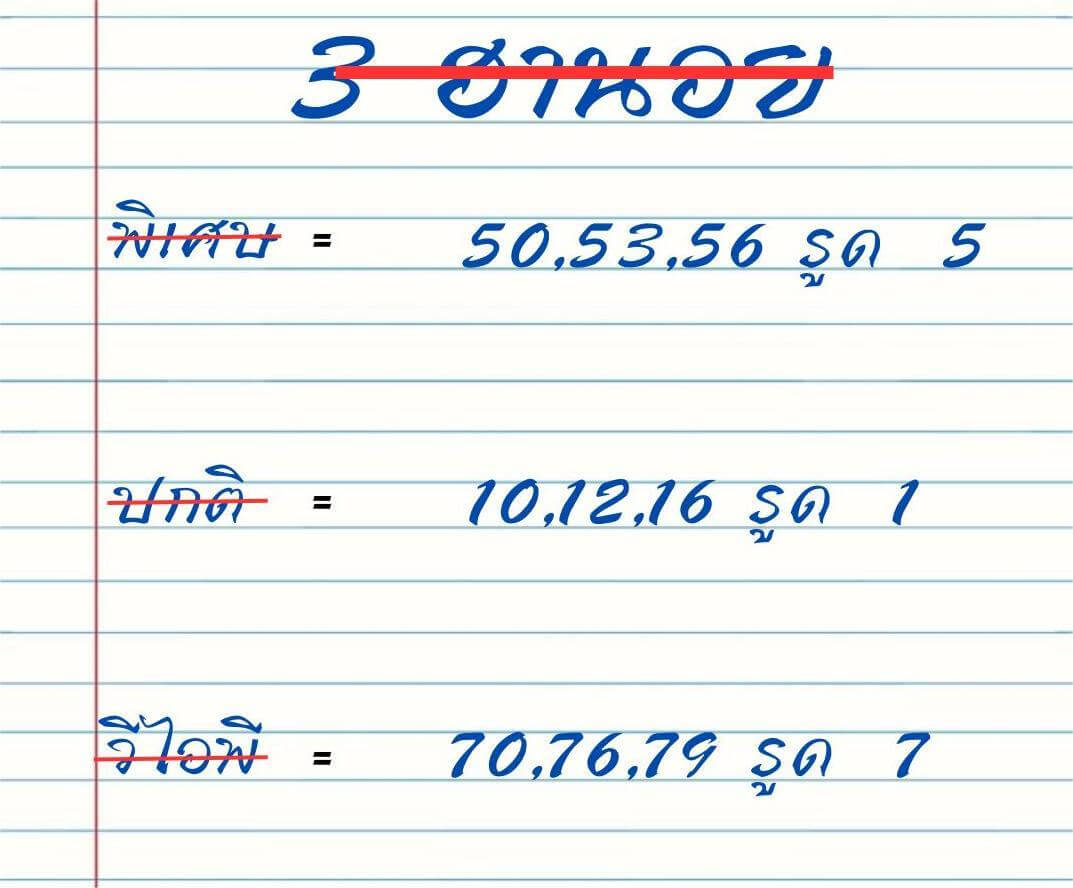 3 ฮานอย
พิเศษ = 50,53,56 รูด 5
ปกติ = 10,12,16 รูด 1
วีไอพี = 70,76,79 รูด 7